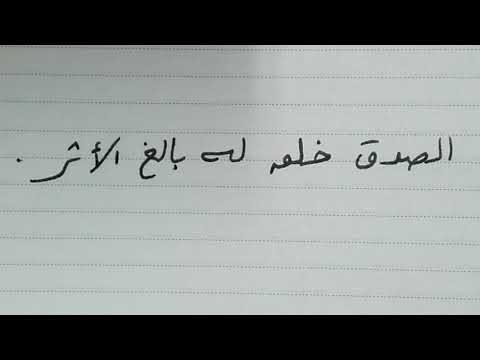 الصدق خلق له بالغ الأثر .